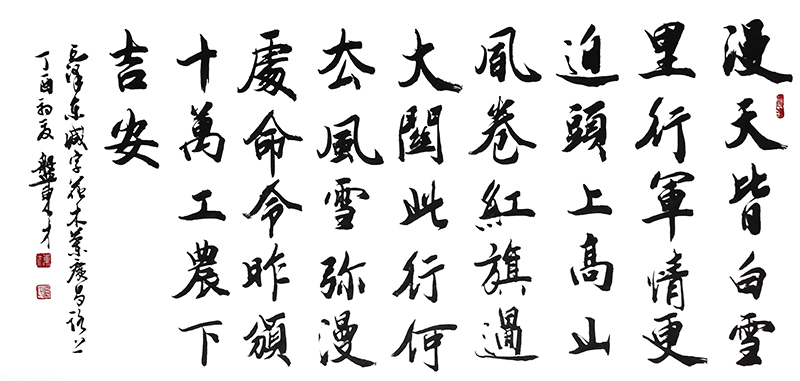 漫天皆白雪
里行軍情更
迫頭上高山
風卷紅旗過
大關此行何
去風雪弥漫
處命令昨頒
十萬工農下
吉安
毛泽东减字花木蘭廣昌路上
丁酉初夏